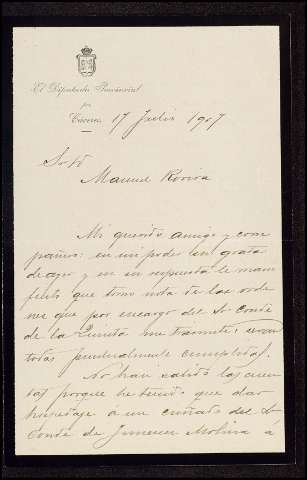 El Diputado Provincial
por
Cáceres 17 Julio 1907
Sr. D.
Manuel Rovira
Mi querido amigo y com
pañero: en mi poder su grata
de ayer y en su respuesta le mani
fiesto que tomo nota de las orde
nes que por encargo del Sr Conde
de la me trasmite y seran
todas puntualmente cumplidas.
No han salido las cuen
tas porque he tenido que dar
hospedaje á un cuñado del Sr
Conde de Jimenez Molina á